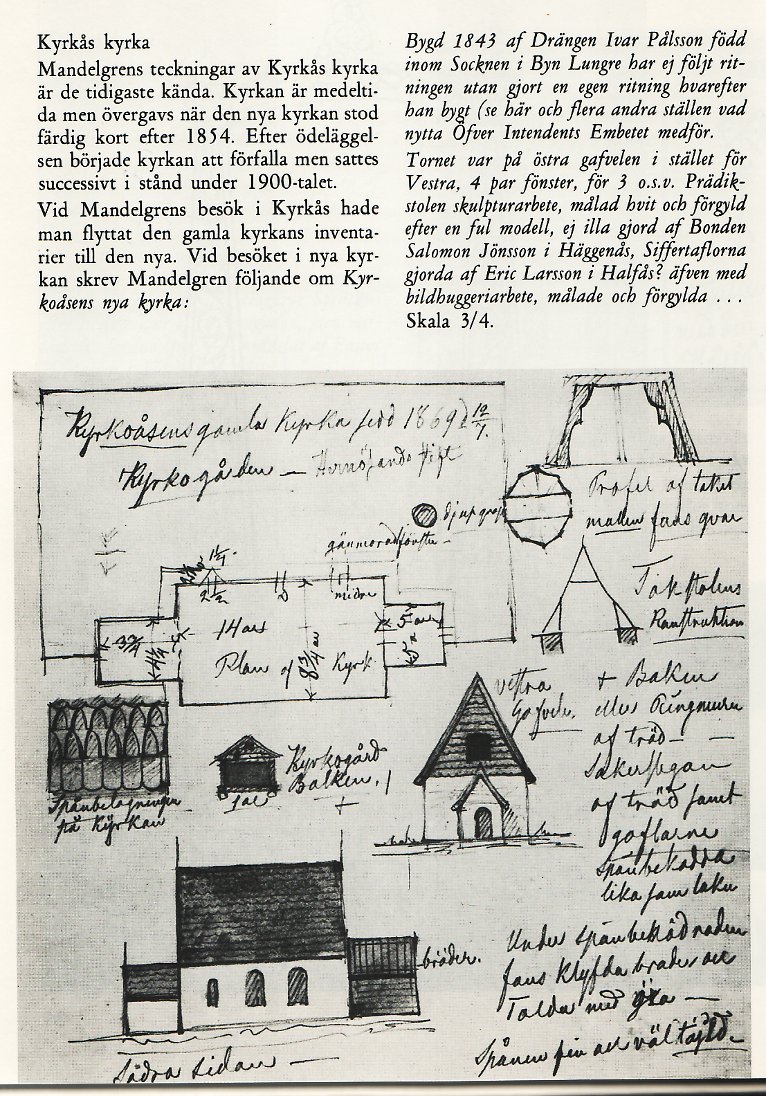 Kyrkås kyrka
Mandelgrens teckningar av Kyrkås kyrka
är de tidigaste kända. Kyrkan är medelti-
da men övergavs när den nya kyrkan stod
färdig kort efter 1854. Efter ödeläggel-
sen började kyrkan att förfalla men sattes
successivt i stånd under 1900-talet.
Vid Mandelgrens besök i Kyrkås hade
man flyttat den gamla kyrkans inventa-
rier till den nya. Vid besöket i nya kyr-
kan skrev Mandelgren följande om Kyr-
koåsens nya kyrka:
Bygd 1843 af Drängen Ivar Pålsson född
inom Socknen i Byn Lungre har ej följt rit-
ningen utan gjort en egen ritning hvarefter
han bygt (se här och flera andra ställen vad
nytta Öfver Intendents Embetet medför.
Tornet var på östra gafvelen i stället för
Vestra, 4 par fönster, för 3 o.s.v. Prädik-
stolen skulpturarbete, målad hvit och förgyld
efter en ful modell, ej illa gjord af Bonden
Salomon Jönsson i Häggenås, Siffertaflorna
gjorda af Eric Larsson i Halfås? äfven med
bildhuggeriarbete, målade och förgylda ...
Skala 3/4.
Kyrkoåsens gamla Kyrka 1869 12/7.
Kyrkogården — Hernösands Stift
Profil af taket
fans qvar
djup grop
1 1/4
2 1/2
Takstolens
Konstruktion
14 al
Plan af Kyrk
8 3/4 al
3 3/4
4 1/4
5 al
Vestra
Gafveln.
+ Balken
eller Ringmuren
af träd —
af träd samt
gaflarne
spånbekädda
lika som taket
Spånbeläggningen
på Kyrkan
Kyrkogård
Balken.
+
bräder.
Under spånbeklädnaden
fans klyfda bräder
med yxa —
Spånen
Södra sidan —